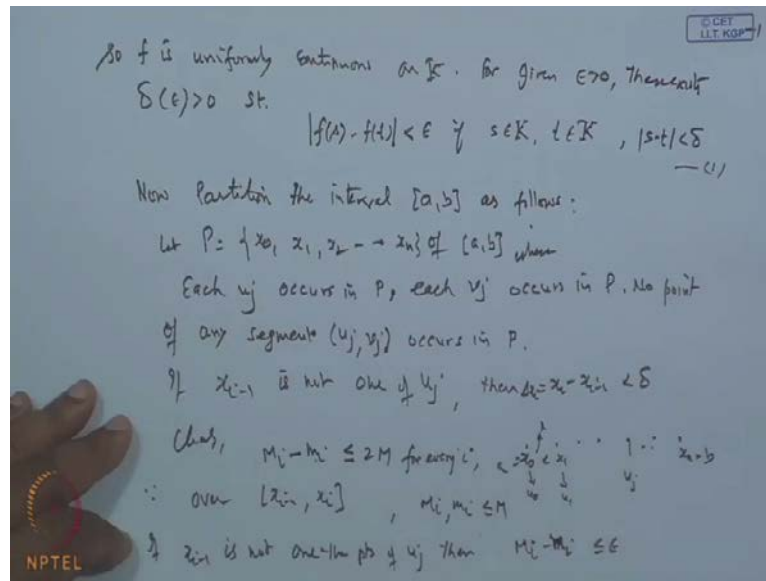 © CET
I.I.T. KGP
So f is uniformly continuous on K. For given ε>0, there exists
δ(ε)>0 st.
|f(s)-f(t)| < ε if s∈K, t∈K, |s-t|<δ
—(1)
Now Partition the interval [a,b] as follows:
Let P = {x0, x1, x2 - - xn} of [a,b] where
Each uj occurs in P, each vj occurs in P. No point
of any segment (uj, vj) occurs in P.
If xi-1 is not one of uj, then Δxi = xi - xi-1 < δ
Clear, Mi - mi ≤ 2M for every i, a = x0 < x1 . . . xn = b
u0 u1 uj
∵ over [xi-1, xi], Mi, mi ≤ M
If xi-1 is not one-the pts of uj then Mi - mi ≤ ε
NPTEL